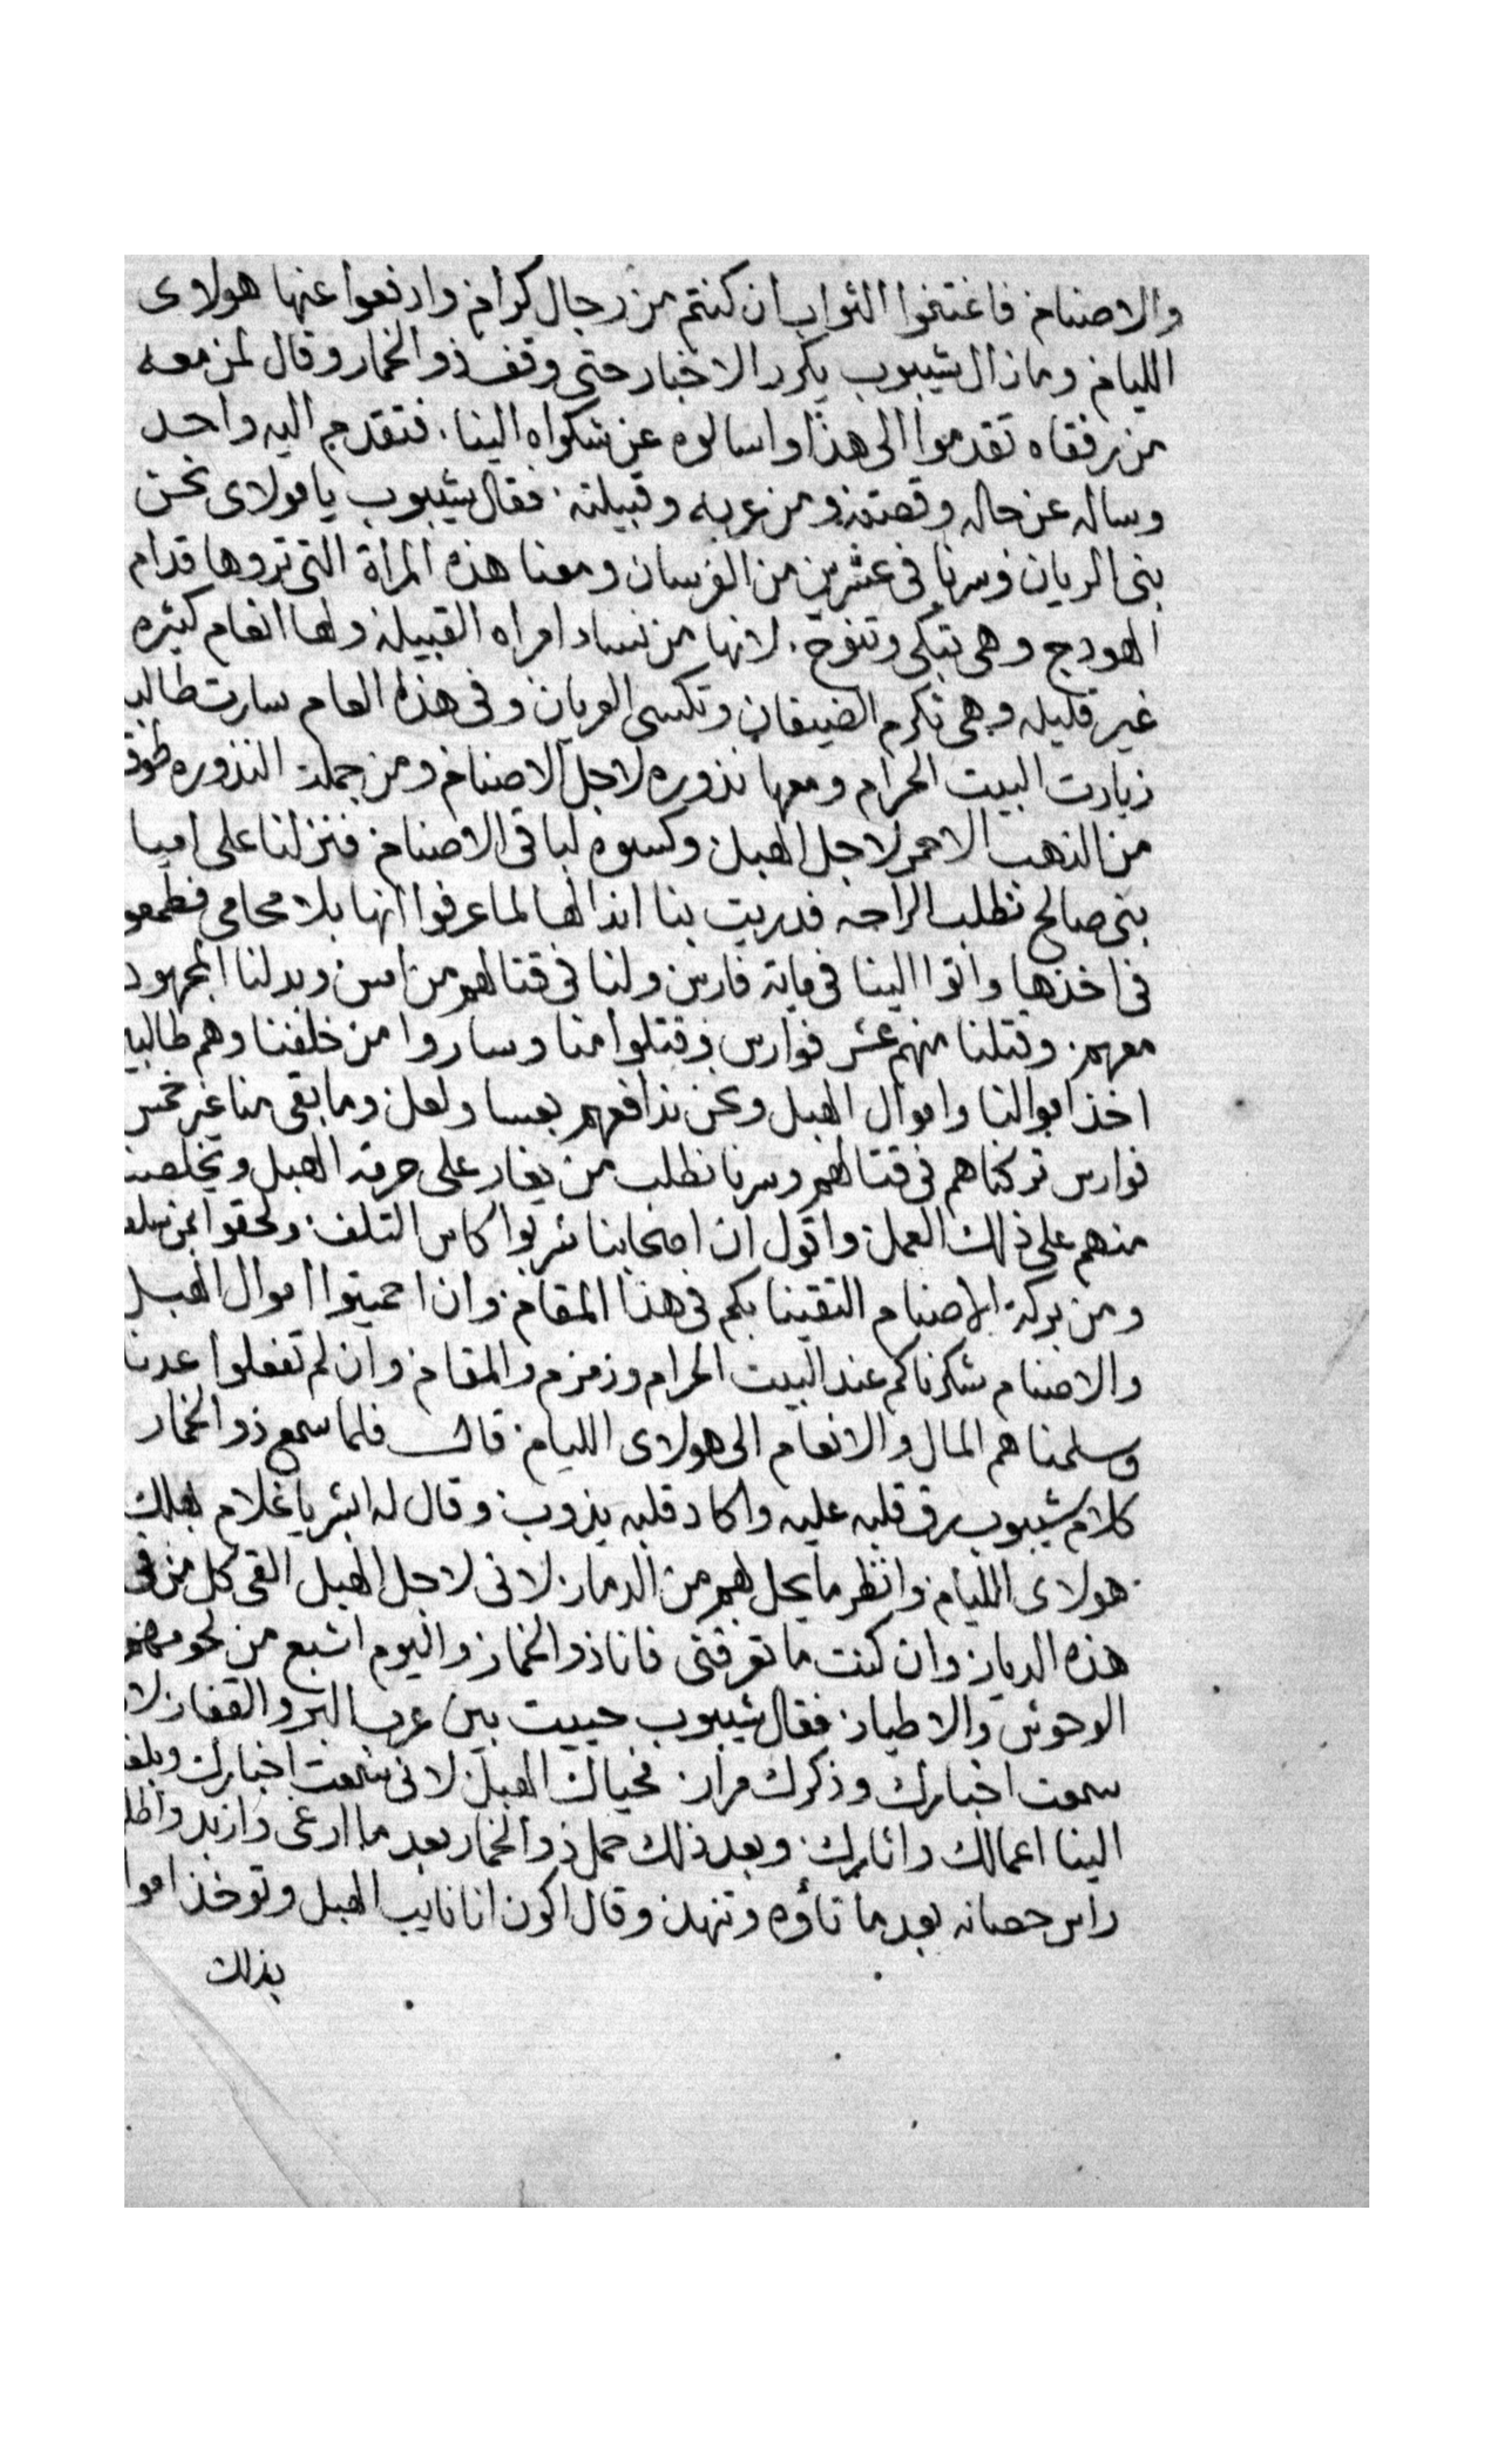 والاصنام فاغتنموا الثواب ان كنتم من رجال كرام وادفعوا عنها هولاى
الليام وما زال شيبوب يكرر الاخبار حتى وقف ذو الخمار وقال لمن معه
من رفقاه تقدموا الى هذا واسالوه عن شكواه الينا. فتقدم اليه واحد
وساله عن حاله وقصته ومن عربه وقبيلته. فقال شيبوب يا مولاى نحن
بنى الريان وسرنا فى عشرين من الفرسان ومعنا هذه المراة التى تروها قدام
الهودج وهى تبكى وتنوح. لانها من نساء امراه القبيله ولها انعام كثيره
غير قليله وهى تكرم الضيفان وتكسى العريان وفى هذا العام سارت طالبه
زيارت البيت الحرام ومعها نذوره لاجل الاصنام ومن جملت النذوره طوق
من الذهب الاحمر لاجل الهبل وكسوه لباقى الاصنام فنزلنا على امياه
بنى صالح نطلب الراحه فدريت بنا انذالها لما عرفوا انها بلا محامى فطمعو
فى اخذها واتوا الينا فى مايه فارس ولنا فى قتالهم من امس وبدلنا المجهود
معهم. وقتلنا منهم عشر فوارس وقتلوا منا وساروا من خلفنا وهم طالبين
اخذ اموالنا واموال الهبل ونحن ندافعهم بعسا ولعل وما بقى منا غير خمس
فوارس تركناهم فى قتالهم وسرنا نطلب من يغار على حرمة الهبل ويخلصنا
منهم على ذلك العمل واقول ان اصحابنا شربوا كاس التلف ولحقوا بمن سلف
ومن بركة الاصنام التقينا بكم فى هذا المقام وان احميتوا اموال الهبل
والاصنام شكرناكم عند البيت الحرام وزمزم والمقام وان لم تفعلوا عدنا
وسلمناهم المال والانعام الى هولاى الليام. قال فلما سمع ذو الخمار
كلام شيبوب رق قلبه عليه واكاد قلبه يذوب وقال له ابشر يا غلام بهلاك
هولاى الليام وانظر ما يحل بهم من الدمار لانى لاجل الهبل القى كل من فى
هذه الديار وان كنت ما تعرفنى فانا ذو الخمار واليوم اشبع من لحومهم
الوحوش والاطيار فقال شيبوب حييت بين عرب البر والقفار لانى
سمعت اخبارك وذكرك مرار. فحياك الهبل لانى سمعت اخبارك وبلغ
الينا اعمالك واثارك. وبعد ذلك حمل ذو الخمار بعد ما ارغى وازبد
راس حصانه بعد ما تاوه وتنهد وقال اكون انا نايب الهبل وتوخذ اموا
بذلك